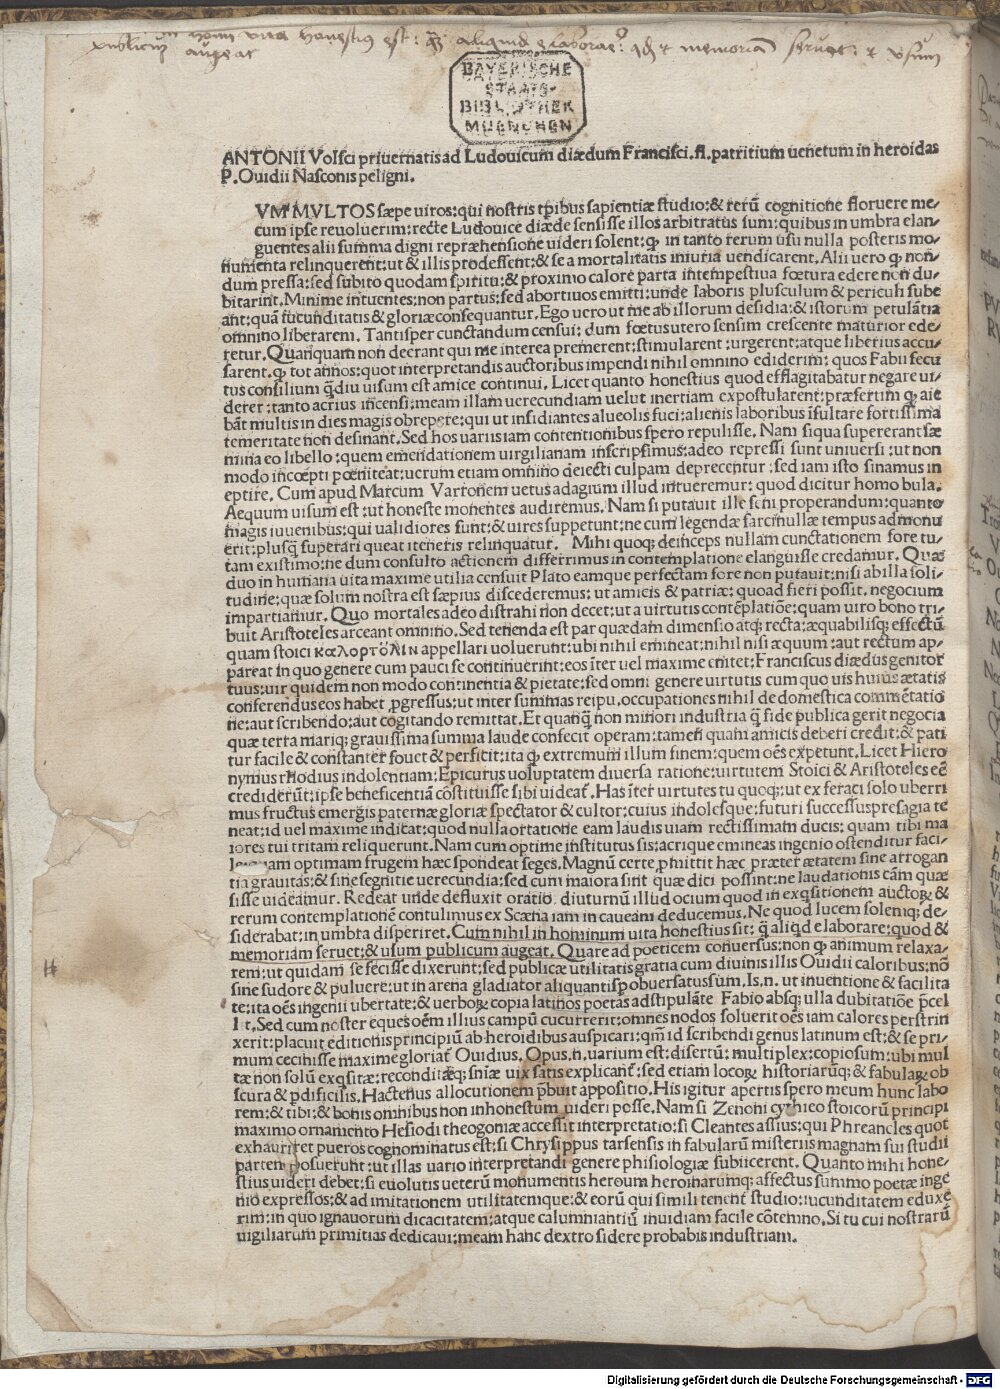 in homi vita honestius est: quam aliquid elaborare: qd & memoriam seruet: & vsum
publicum augeat
BAYERISCHE
STAATS-
BIBLIOTHEK
MUENCHEN
ANTONII Volsci priuernatis ad Ludouicum diædum Francisci.fi.patritium uenetum in heroidas
P.Ouidii Nasconis peligni.
VM MVLTOS sæpe uiros:qui nostris tp̄ibus sapientiæ studio:& rerū cognitione floruere me-
cum ipse reuoluerim:recte Ludouice diæde sensisse illos arbitratus sum:quibus in umbra elan-
guentes alii summa digni repræhensione uideri solent:ꝙ in tanto rerum usu nulla posteris mo-
numenta relinquerent:ut & illis prodessent:& se a mortalitatis iniuria uendicarent.Alii uero ꝙ non-
dum pressa:sed subito quodam spiritu:& proximo calore parta intempestiua fœtura edere non du-
bitarint.Minime intuentes:non partus:sed abortiuos emitti:unde laboris plusculum & periculi sube
ant:quā fœcunditatis & gloriæ consequantur.Ego uero ut me ab illorum desidia:& istorum petulātia
omnino liberarem.Tantisper cunctandum censui:dum fœtus utero sensim crescente maturior ede-
retur.Quanquam non deerant qui me interea premerent:stimularent:urgerent:atque liberius accu-
sarent.ꝙ tot annos:quot interpretandis auctoribus impendi nihil omnino ediderim:quos Fabii secu
tus consilium q̄diu uisum est amice continui.Licet quanto honestius quod efflagitabatur negare ui-
derer:tanto acrius incensi:meam illam uerecundiam uelut inertiam expostularent:præsertim ꝙ aie
bāt multis in dies magis obrepere:qui ut insidiantes alueolis fuci:alienis laboribus īsultare fortissima
temeritate non desinant.Sed hos uariis iam contentionibus spero repulisse.Nam siqua supererant sæ
mina eo libello:quem emendationem uirgilianam inscripsimus:adeo repressi sunt uniuersi:ut non
modo incœpti pœniteat:uerum etiam omnino deiecti culpam deprecentur:sed iam isto sinamus in
eptire.Cum apud Marcum Varronem uetus adagium illud intueremur:quod dicitur homo bula.
Aequum uisum est:ut honeste monentes audiremus.Nam si putauit ille seni properandum:quanto
magis iuuenibus:qui ualidiores sunt:& uires suppetunt:ne cum legendæ sarcinullæ tempus admonu
erit:plusq̄ superari queat iteneris relinquatur. Mihi quoq; deinceps nullam cunctationem fore tu-
tam existimo:ne dum consulto actionem differrimus in contemplatione elanguisse credamur.Quæ
duo in humana uita maxime utilia censuit Plato eamque perfectam fore non putauit:nisi ab illa soli-
tudine:quæ solum nostra est sæpius discederemus:ut amicis & patriæ:quoad fieri possit.negocium
impartiamur.Quo mortales adeo distrahi non decet:ut a uirtutis contēplatiōe:quam uiro bono tri-
buit Aristoteles arceant omnino.Sed tenenda est par quædam dimensio atq; recta:æquabilisq; effectū
quam stoici καλορτόλιν appellari uoluerunt:ubi nihil emineat:nihil nisi æquum:aut rectum ap-
pareat in quo genere cum pauci se continuerint:eos iter uel maxime emitet:Franciscus diædus genitor
tuus:uir quidem non modo continentia & pietate:sed omni genere uirtutis cum quo uis huius ætatis
conferendus eos habet ꝓgressus:ut inter summas reipu.occupationes nihil de domestica commētatio
ne:aut scribendo:aut cogitando remittat.Et quanq̄ non minori industria q̄ fide publica gerit negocia
quæ terra mariq; grauissima summa laude confecit operam:tamen quam amicis deberi credit:& pati
tur facile & constanter fouet & perficit:ita ꝙ extremum illum finem:quem oēs expetunt.Licet Hiero
nymus rhodius indolentiam:Epicurus uoluptatem diuersa ratione:uirtutem Stoici & Aristoteles eē
crediderūt:ipse beneficentiā cōstituisse sibi uideat̄.Has iter uirtutes tu quoq;:ut ex feraci solo uberri
mus fructus emergis paternæ gloriæ spectator & cultor:cuius indolesque:futuri successus presagia te
neat:id uel maxime indicat:quod nulla ortatione eam laudis uiam rectissimam ducis:quam tibi ma
iores tui tritam reliquerunt.Nam cum optime institutus sis:acrique emineas ingenio ostenditur faci-
le quam optimam frugem hæc spondeat seges.Magnū certe ꝓmittit hæc præter ætatem sine arrogan
tia grauitas:& sine segnitie uerecundia:sed cum maiora sint quæ dici possint:ne laudationis cām quæ
sisse uideamur.Redeat unde defluxit oratio.diuturnū illud ocium quod in exq̄sitionem auctoꝝ &
rerum contemplationē contulimus ex Scæna iam in caueam deducemus.Ne quod lucem solenq; de-
siderabat:in umbra disperiret.Cum nihil in hominum uita honestius sit:q̄ aliq̄d elaborare:quod &
memoriam seruet:& usum publicum augeat.Quare ad poeticem conuersus:non ꝙ animum relaxa-
rem:ut quidam se fecisse dixerunt:sed publicæ utilitatis gratia cum diuinis illis Ouidii caloribus:nō
sine sudore & puluere:ut in arena gladiator aliquantisꝑ obuersatus sum.Is.n.ut inuentione & facilita
te:ita oēs ingenii ubertate:& uerboꝝ copia latinos poetas adstipulāte Fabio absq; ulla dubitatiōe p̄cel
lit.Sed cum noster eques oēm illius campū cucurrerit:omnes nodos soluerit oēs iam calores perstrin
xerit:placuit editionis principiū ab heroidibus auspicari:qm̄ id scribendi genus latinum est:& se pri-
mum cecinisse maxime gloriat̄ Ouidius.Opus.n.uarium est:disertū:multiplex:copiosum:ubi mul
tæ non solū exq̄sitæ:reconditæq; sniæ uix satis explicant̄:sed etiam locoꝝ historiarūq;:& fabulaꝝ ob
scura & p̄dificilis.Hactenus allocutionem p̄buit appositio.His igitur apertis spero meum hunc labo
rem:& tibi:& bonis omnibus non inhonestum uideri posse.Nam si Zenoni cythico stoicorū principi
maximo ornamento Hesiodi theogoniæ accessit interpretatio:si Cleantes assius:qui Phreancles quot
exhauriret pueros cognominatus est:si Chrysippus tarsensis in fabularū misteriis magnam sui studii
partem posuerunt:ut illas uario interpretandi genere phisiologiæ subiicerent.Quanto mihi hone-
stius uideri debet:si euolutis ueterū monumentis heroum heroinarumq; affectus summo poetæ inge
nio expressos:& ad imitationem utilitatemque:& eorū qui simili tenent̄ studio:iucunditatem eduxe
rim:in quo ignauorum dicacitatem:atque calumniantiū inuidiam facile cōtemno.Si tu cui nostrarū
uigiliarum primitias dedicaui:meam hanc dextro sidere probabis industriam.
Digitalisierung gefördert durch die Deutsche Forschungsgemeinschaft - DFG